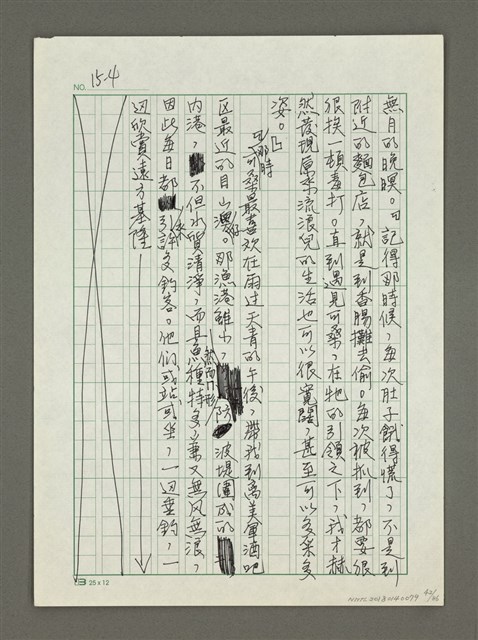 NO. 15-4
無月的晚暝。曰記得那時候，每次肚子餓得慌了，不是到
附近的麵包店，就是到香腸攤去偷。每次被抓到，都要狠
狠挨一頓毒打。直到遇見可桑，在牠的引領之下，我才赫
然發現原來流浪兒的生活也可以很寬闊，甚至可以多采多
姿。」
「那時可桑最喜歡在雨过天青的午後，帶我到离美軍酒吧
区最近的目山澳仔。那漁港雖小，然而门形防波堤圍成的
内港，不但水質清淨，而且魚種特多，兼又無风無浪，
因此每日都引來許多釣客。他们或站或坐，一边垂釣，一
边欣賞遠方基隆
25 x 12
NMTL20180040079
42/106